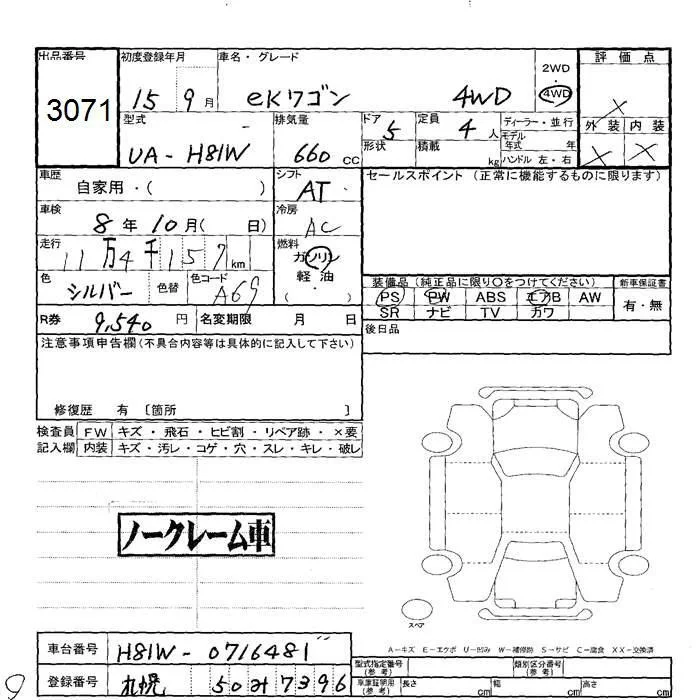 出品番号 初度登録年月 車名・グレード 2WD 評価点
3071 15 9月 eKワゴン 4WD 4WD ×
型式 排気量 ドア 5 定員 4人 ディーラー・並行 外装 内装
形状 積載 kg モデル年式 年
UA-H81W 660cc ハンドル 左・右 × ×
車歴 自家用・( ) シフト AT セールスポイント (正常に機能するものに限ります)
車検 8年10月( 日) 冷房 AC
走行 11万4千157km 燃料 ガソリン・軽油( )
色 シルバー 色替 色コード A69 装備品(純正品に限り○をつけてください) 新車保証書
PS PW ABS エアB AW 有・無
SR ナビ TV カワ
R券 9,540円 名変期限 月 日 後日品
注意事項申告欄(不具合内容等は具体的に記入して下さい)
修復歴 有 [箇所 ]
検査員 FW キズ・飛石・ヒビ割・リペア跡・×要
記入欄 内装 キズ・汚レ・コゲ・穴・スレ・キレ・破レ
ノークレーム車
スペア
A-キズ E-エクボ U-凹み W-補修跡 S-サビ C-腐食 XX-交換済
車台番号 H81W-0716481 型式指定番号(参考) 類別区分番号(参考)
登録番号 札幌 50み7396 車庫証明用(参考) 長さ cm 幅 cm 高さ cm